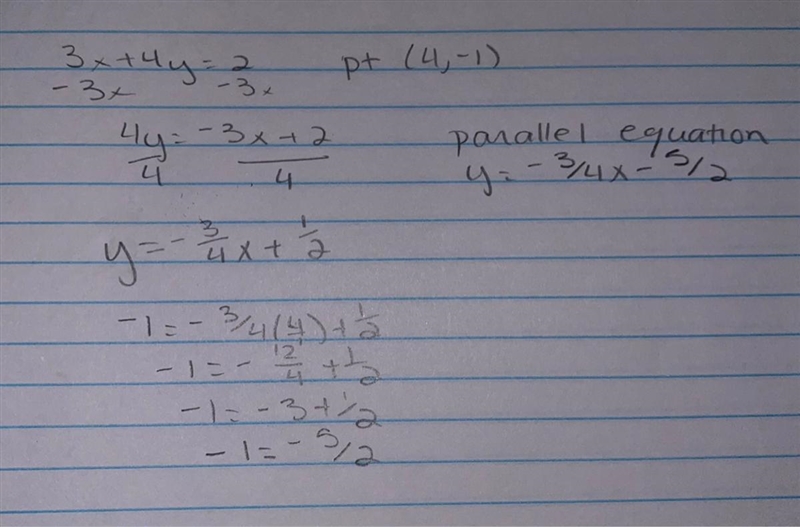 3x+4y=2 pt (4,-1)
-3x -3x
4y = -3x+2 parallel equation
4 4 y= -3/4x-5/2
y=-3/4x+1/2
-1=-3/4(4)+1/2
-1=-12/4+1/2
-1=-3+1/2
-1=-5/2